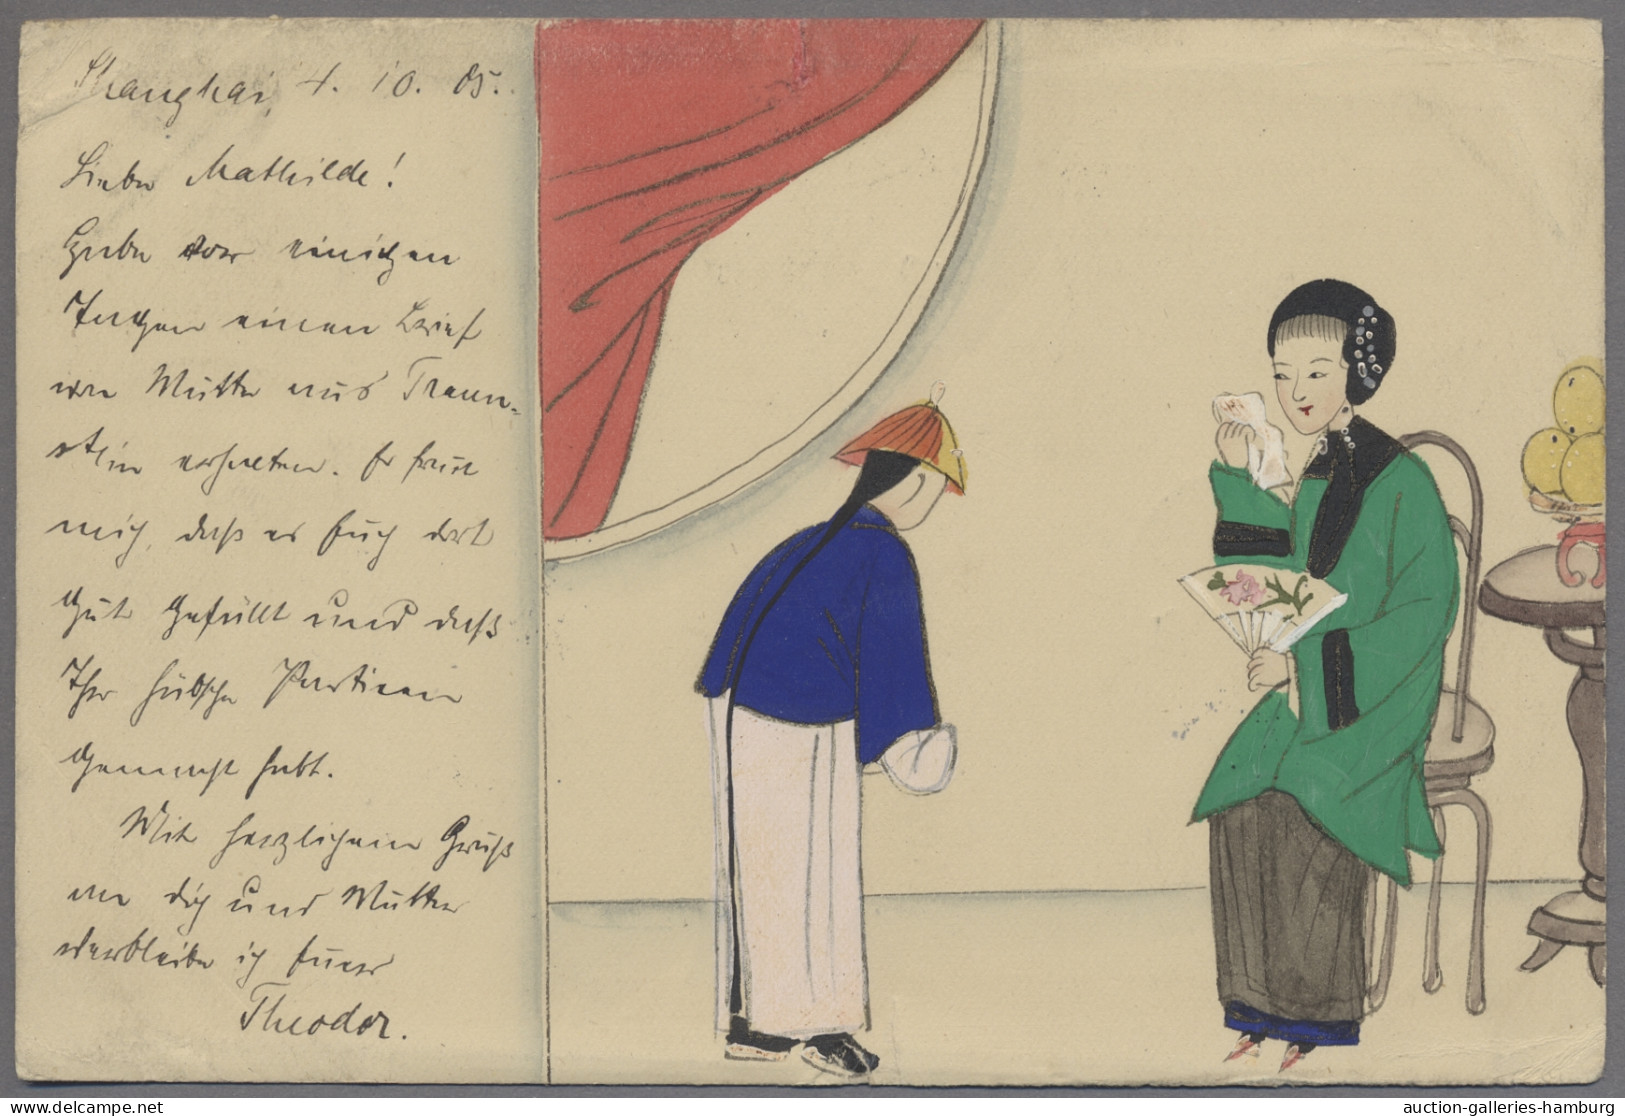 Shanghai, 4. 10. 05.
Liebe Mathilde!
Habe vor einigen
Tagen einen Brief
von Mutter aus Traun-
stein erhalten. Es freut
mich, daß es Euch dort
gut gefällt und daß
Ihr hübsche Partieen
gemacht habt.
Mit herzlichem Gruß
an dich und Mutter
verbleibe ich Euer
Theodor.
auction-galleries-hamburg